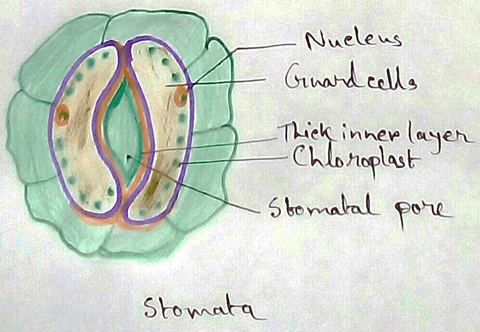 Nucleus
Guard cells
Thick inner layer
Chloroplast
Stomatal pore
Stomata